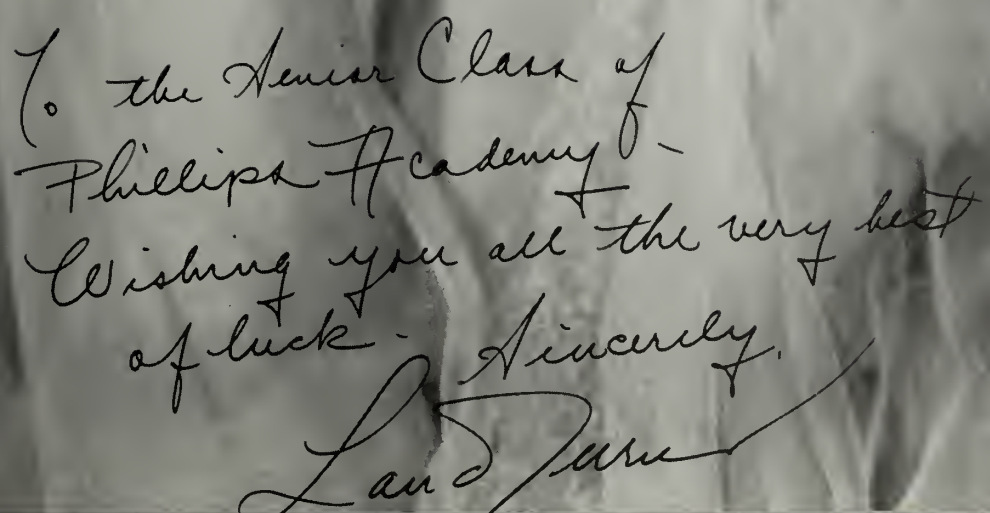 To the Senior Class of
Phillips Academy -
Wishing you all the very best
of luck - Sincerely,
Lana Turner